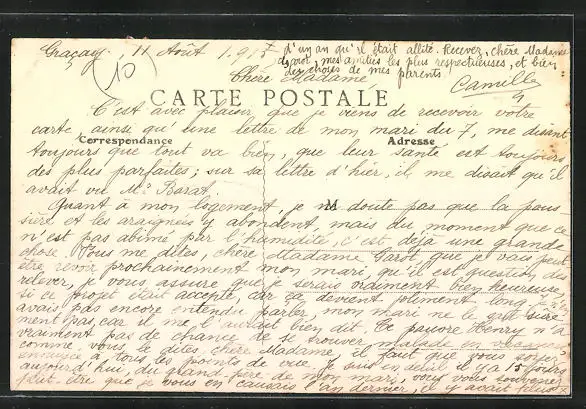 Graçay, 11 Août 1915
10
Chère Madame
CARTE POSTALE
Correspondance
Adresse
M
C'est avec plaisir que je viens de recevoir votre
carte, ainsi qu'une lettre de mon mari du 7, me disant
toujours que tout va bien, que leur santé est toujours
des plus parfaites; sur sa lettre d'hier, il me disait qu'il
avait vu Mr Barat.
Quant à mon logement, je ne doute pas que la pous-
sière et les araignées y abondent, mais du moment que ce
n'est pas abimé par l'humidité, c'est déjà une grande
chose. Vous me dites, chère Madame Garot, que je vais peut
être revoir prochainement mon mari, qu'il est question des
relever, je vous assure que je serais vraiment bien heureuse,
si ce projet était accepté, car ça devient joliment long. Je n'
avais pas encore entendu parler, mon mari ne le sait sûre-
ment pas, car il me l'aurait bien dit. Ce pauvre Henry n'a
vraiment pas de chance de se trouver malade en
comme vous le dites chère Madame, il faut que vous soyez
ennuyée à tous les points de vue. Je suis en deuil il y a 15 jours
aujourd'hui, du grand père de mon mari, vous vous souvenez
peut-être que je vous en causais l'an dernier, il y avait plus
d'un an qu'il était alité. Recevez, chère Madame
Garot, mes amitiés les plus respectueuses, et bien
des choses de mes parents
Camille